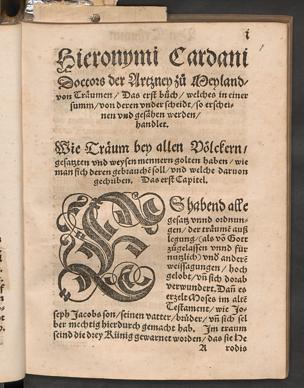 i
Hieronymi Cardani
Doctors der Artzney zů Meyland/
von Träumen/ Das erst bůch/ welches in einer
summ/ von deren vnder scheidt/ so erschei-
nen vnd gesähen werden/
handlet.
Wie Träum bey allen Völckern/
gesatzten vnd weysen mennern golten haben/ wie
man sich deren gebrauchē soll/ vnd welche daruon
geschriben. Das erst Capitel.
ES habend alle
gesatz vnnd ordnun-
gen/ der träumē auß
legung/ als vō Gott
zůgelassen vnnd für
nutzlich/ vnd anderē
weissagungen/ hoch
gelobt/ vñ sich dorab
verwundert. Dañ es
erzelt Moses im altē
Testament/ wie Jo-
seph Jacobs son/ seinen vatter/ brůder/ vñ sich sel
ber mechtig hierdurch gemacht hab. Im traum
seind die drey Künig gewarnet worden/ das sie He
A rodis